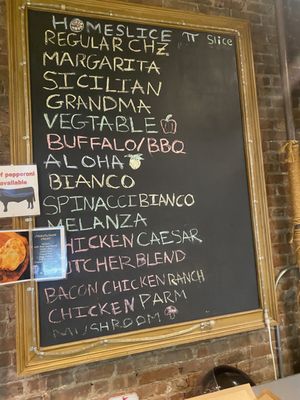 HOMESLICE π Slice
REGULAR CHZ
MARGARITA
SICILIAN
GRANDMA
VEGTABLE
BUFFALO/BBQ
ALOHA
BIANCO
SPINACCI BIANCO
MELANZA
CHICKEN CAESAR
BUTCHER BLEND
BACON CHICKEN RANCH
CHICKEN PARM
MUSHROOM
f pepperoni
available